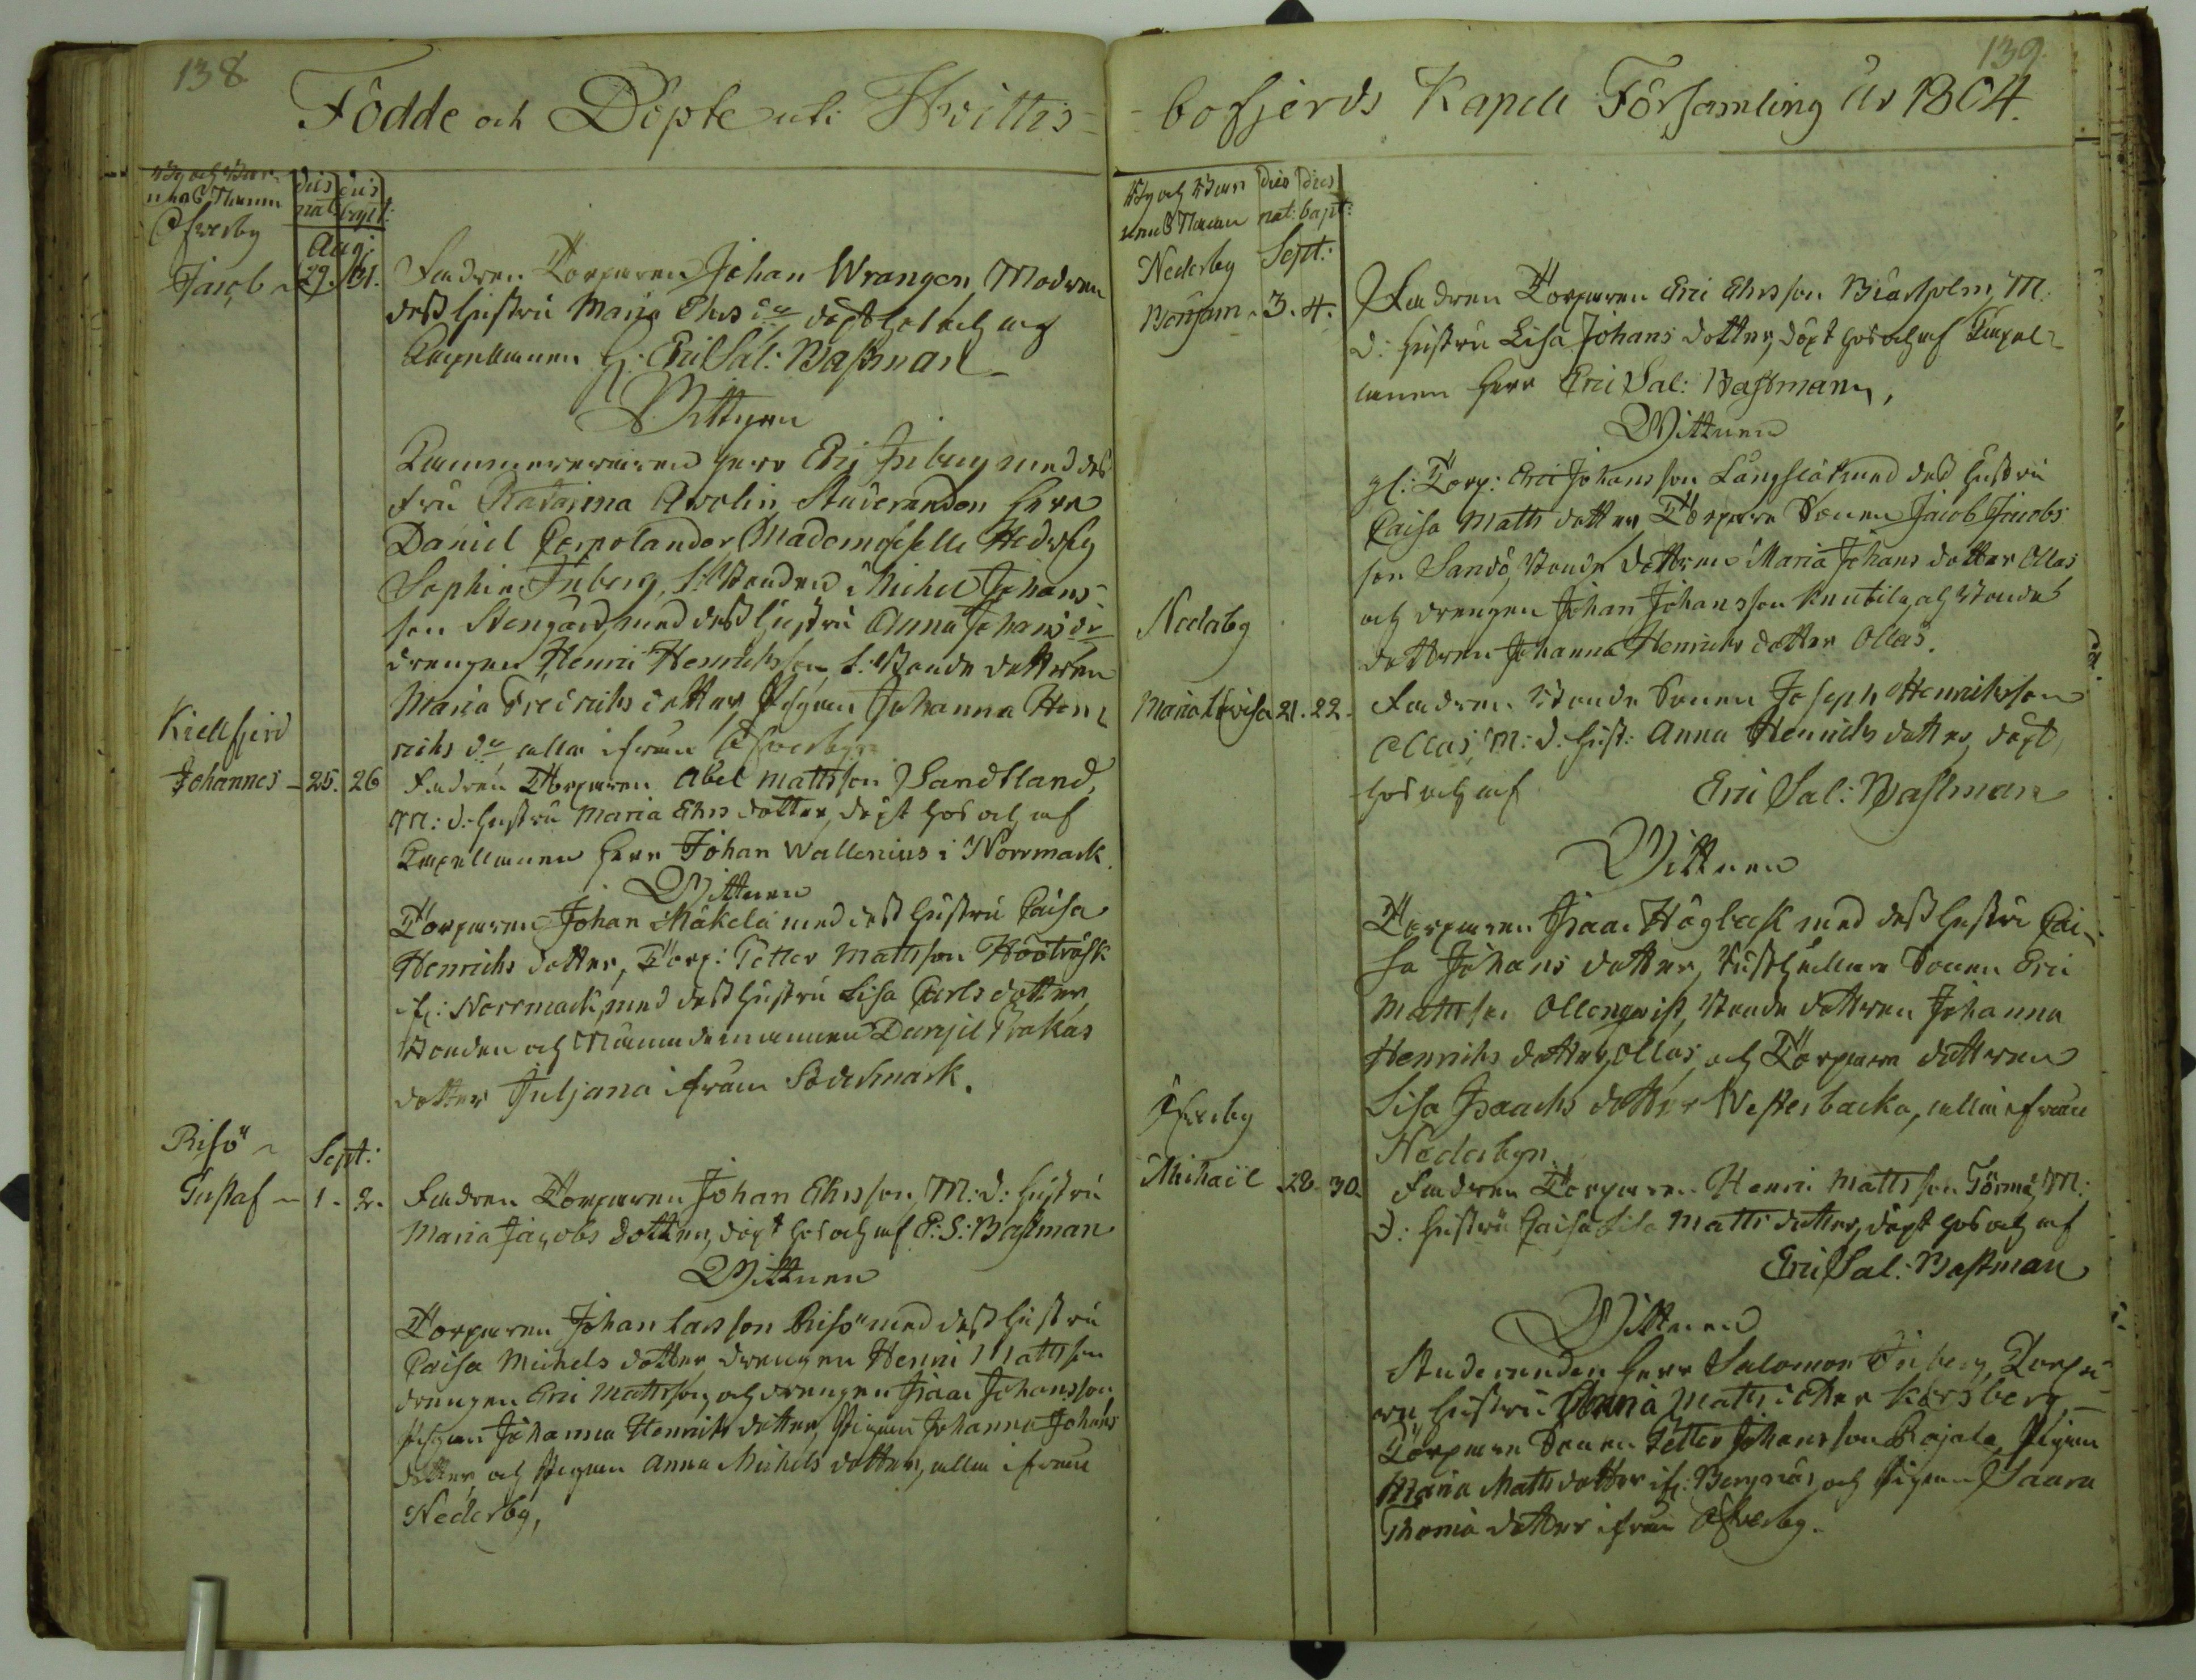 138
Födde och Döpte uti Hvittis-
By och Bar-
nens Namn
dies nat:
dies bapt:
Öfverby
Aug:
Jacob 29. 31.
Fadren Torparen Johan Wrangen, Modren
dess hustru Maria Ehrs dr döpt hos och af
Capellanen H: Eric Sal: Bastman
Vittnen
Kammereraren Herr Eric Inberg med dess
fru Catarina Avolin, Studeranden Herr
Daniel Carpolander, Mademoiselle Hedvig
Sophia Inberg, Bonden Michel Johans-
son Stengård, med dess hustru Anna Johans dr
drengen Henric Henrichsson, Bonde dottren
Maria Fredrichs dotter, Pigan Johanna Hen-
richs dr alla ifrån Öfverbyn
Kiellfjerd
Johannes 25. 26
Fadren Torparen Abel Mattsson Sandstand,
M: d: hustru Maria Ehrs dotter, döpt hos och af
Capellanen Herr Johan Wallenius i Norrmark.
Vittnen
Torparen Johan Mäkelä med dess hustru Caisa
Henrichs dotter, Torp: Petter Mattsson Hööträsk
ifr: Norrmark, med dess hustru Lisa Carls dotter,
Bonden och Nämndemannen Danjel Pakas
dotter Juljana ifrån Södermark.
Risö
Sept:
Gustaf 1. 2.
Fadren Torparen Johan Ehrsson, M: d: hustru
Maria Jacobs dotter, döpt hos och af E: S: Bastman
Vittnen
Torparen Johan Larsson Risö med dess hustru
Caisa Michels dotter, drengen Henric Mattsson
drengen Eric Mattsson, och drengen Isaac Johansson
Pigan Johanna Henrichs dotter, Pigan Johanna Johans
dotter, och Pigan Anna Michels dotter, alla ifrån
Nederby,
139.
bofjerds Kapell Församling År 1804.
By och Barn
nens Namn
dies nat:
dies bapt:
Nederby
Sept:
Benjam. 3. 4.
Fadren Torparen Eric Ehrsson Biörkholm, M.
d: hustru Lisa Johans dotter, döpt hos och af Capel-
lanen Herr Eric Sal: Bastman,
Vittnen
gl: Torp: Eric Johansson Långslät med dess hustru
Caisa Matts dotter, Torpare Sonen Jacob Jacobs
son Sandö, Bonde dottren Maria Johans dotter Ollas
och drengen Johan Johansson Knutila, och Bonde
dottren Johanna Henrichs dotter Ollas.
Nederby
Maria Lovisa 21. 22.
Fadren Bonde Sonen Joseph Henrichsson
Ollas, M: d: hust: Anna Henrichs dotter, döpt
hos och af Eric Sal: Bastman
Vittnen
Torparen Isaac Högback med dess hustru Cai-
sa Johans dotter, Rusthållare Sonen Eric
Mattsson Ollonqvist, Bonde dottren Johanna
Henrichs dotter, Ollas, och Torpare dottren
Lisa Isaachs dotter Westerbacka, alla ifrån
Nederbyn.
Öfverby
Michaël 28. 30.
Fadren Torparen Henric Mattsson Törmä, M:
d: hustru Caisa Lisa Matts dotter, döpt hos och af
Eric Sal: Bastman
Vittnen
Studeranden Herr Salomon Inberg, Torpa-
ren hustru Anna Matts dotter Korsberg,
Torpare Sonen Petter Johansson Rajala, Pigan
Maria Matts dotter ifr: Bergnäs, och Pigan Saara
Thoma dotter ifrån Öfverby.